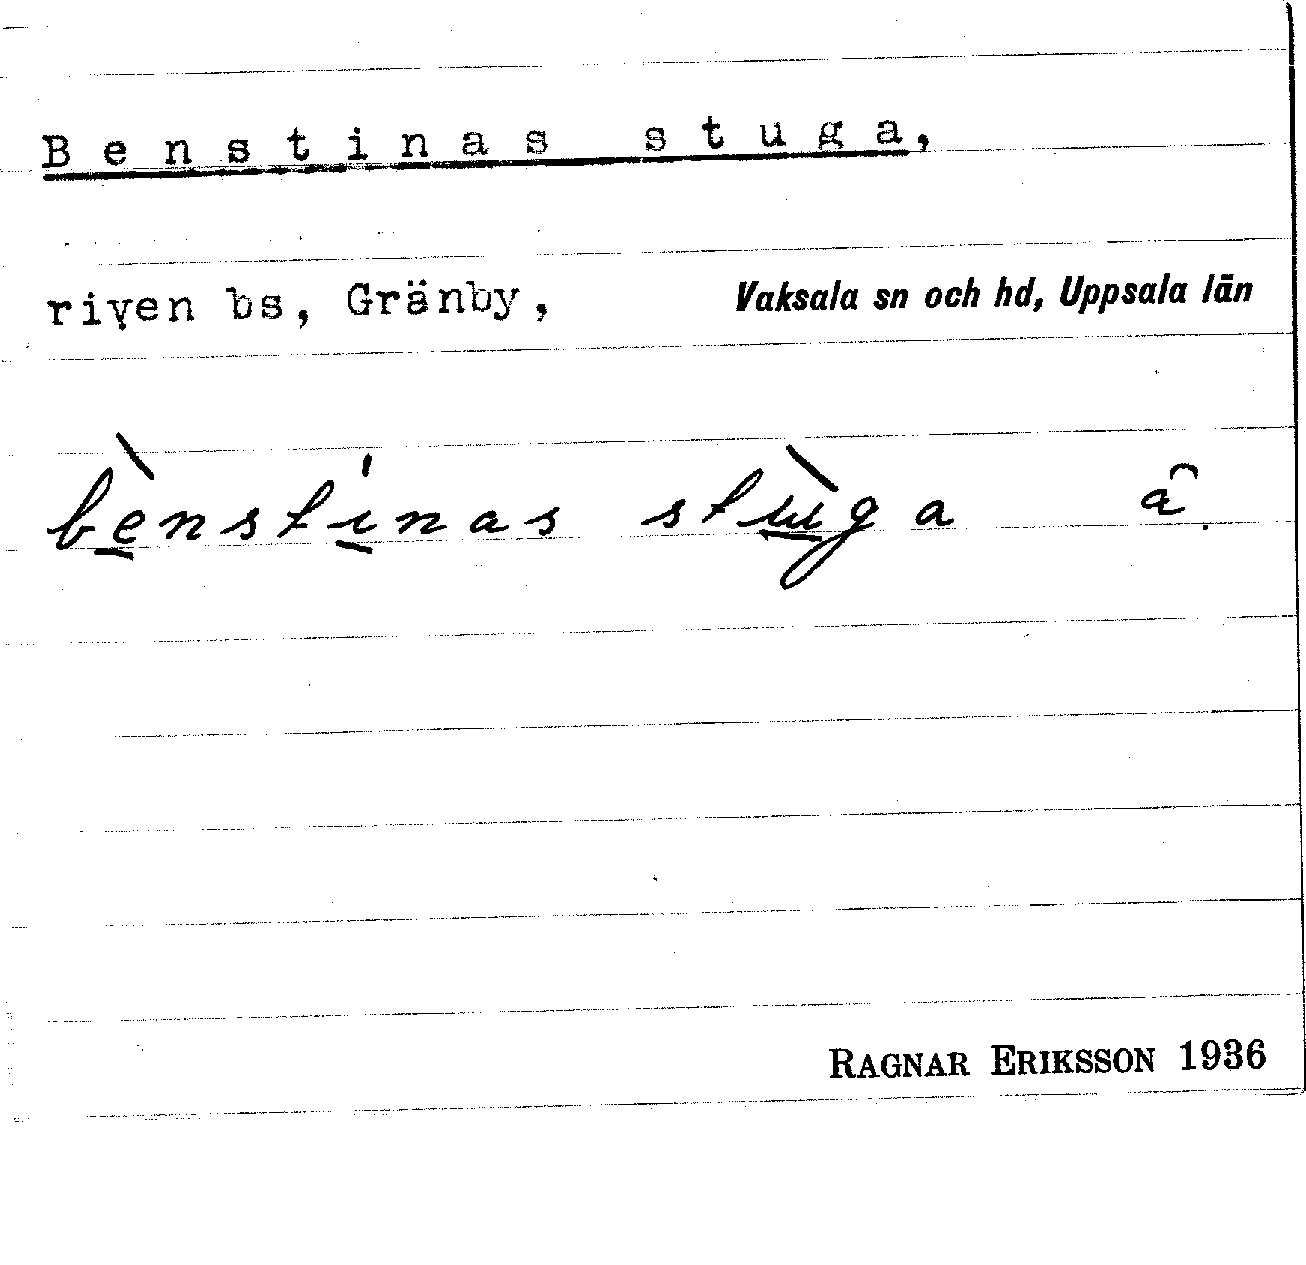 Benstinas stuga,
riven bs, Gränby, Vaksala sn och hd, Uppsala län
bènstínas stùga â.
RAGNAR ERIKSSON 1936